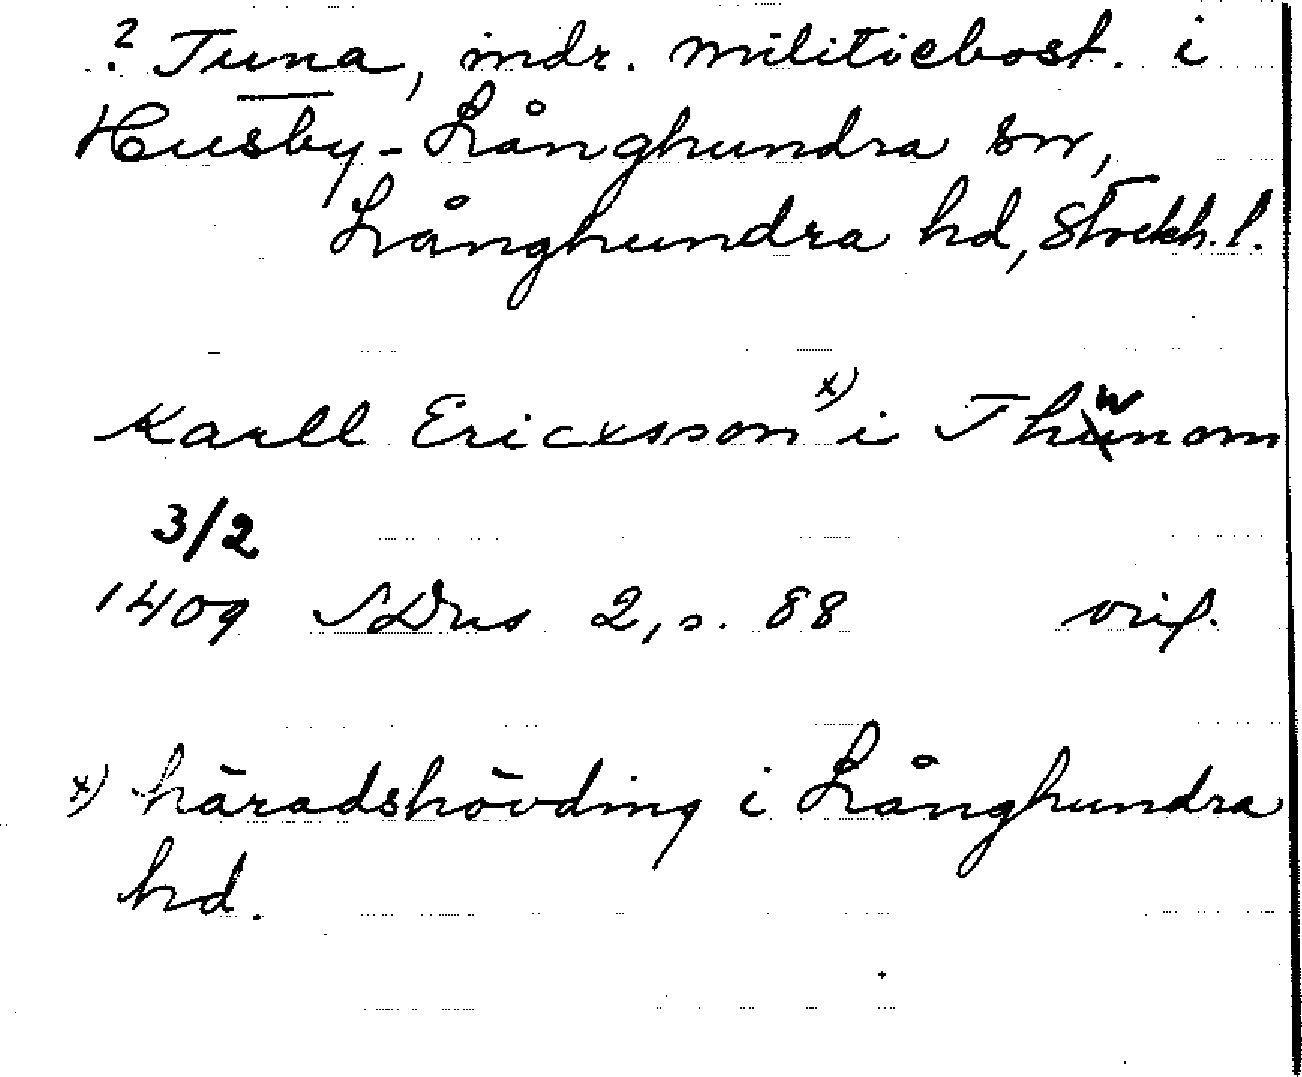 ? Tuna, indr. militiebost. i
Husby-Långhundra sn,
Långhundra hd, Stockh. l.
Karll Ericxsson x) i Thwnom
3/2
1409 SDns 2, s. 88 orig.
x) häradshövding i Långhundra
hd.